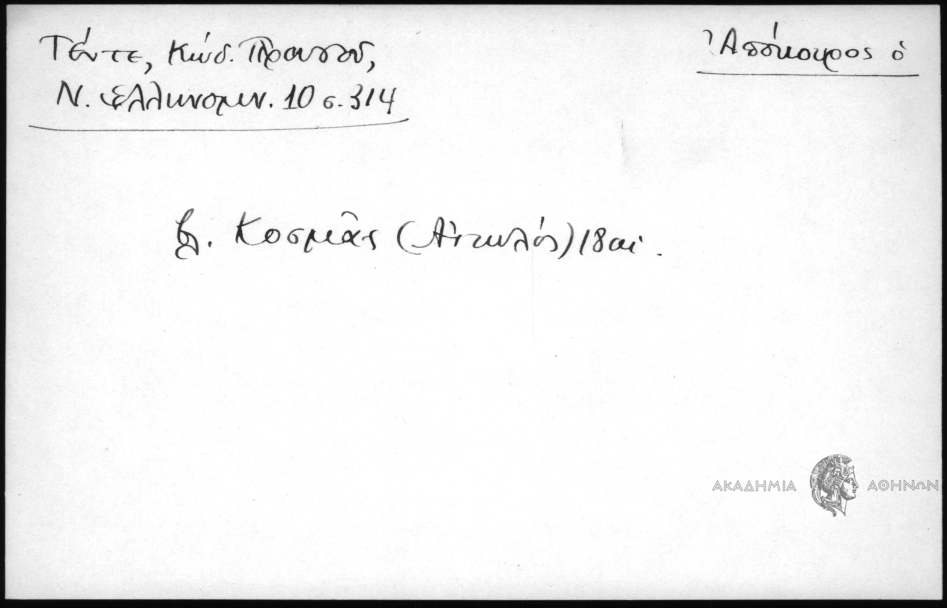 Τέντε, Κώδ. Προυσοῦ,
Ν. Ἑλληνομν. 10 σ. 314
Ἀπόκουρος ὁ
βλ. Κοσμᾶς (Αἰτωλός) 18 αἰ.
ΑΚΑΔΗΜΙΑ ΑΘΗΝΩΝ